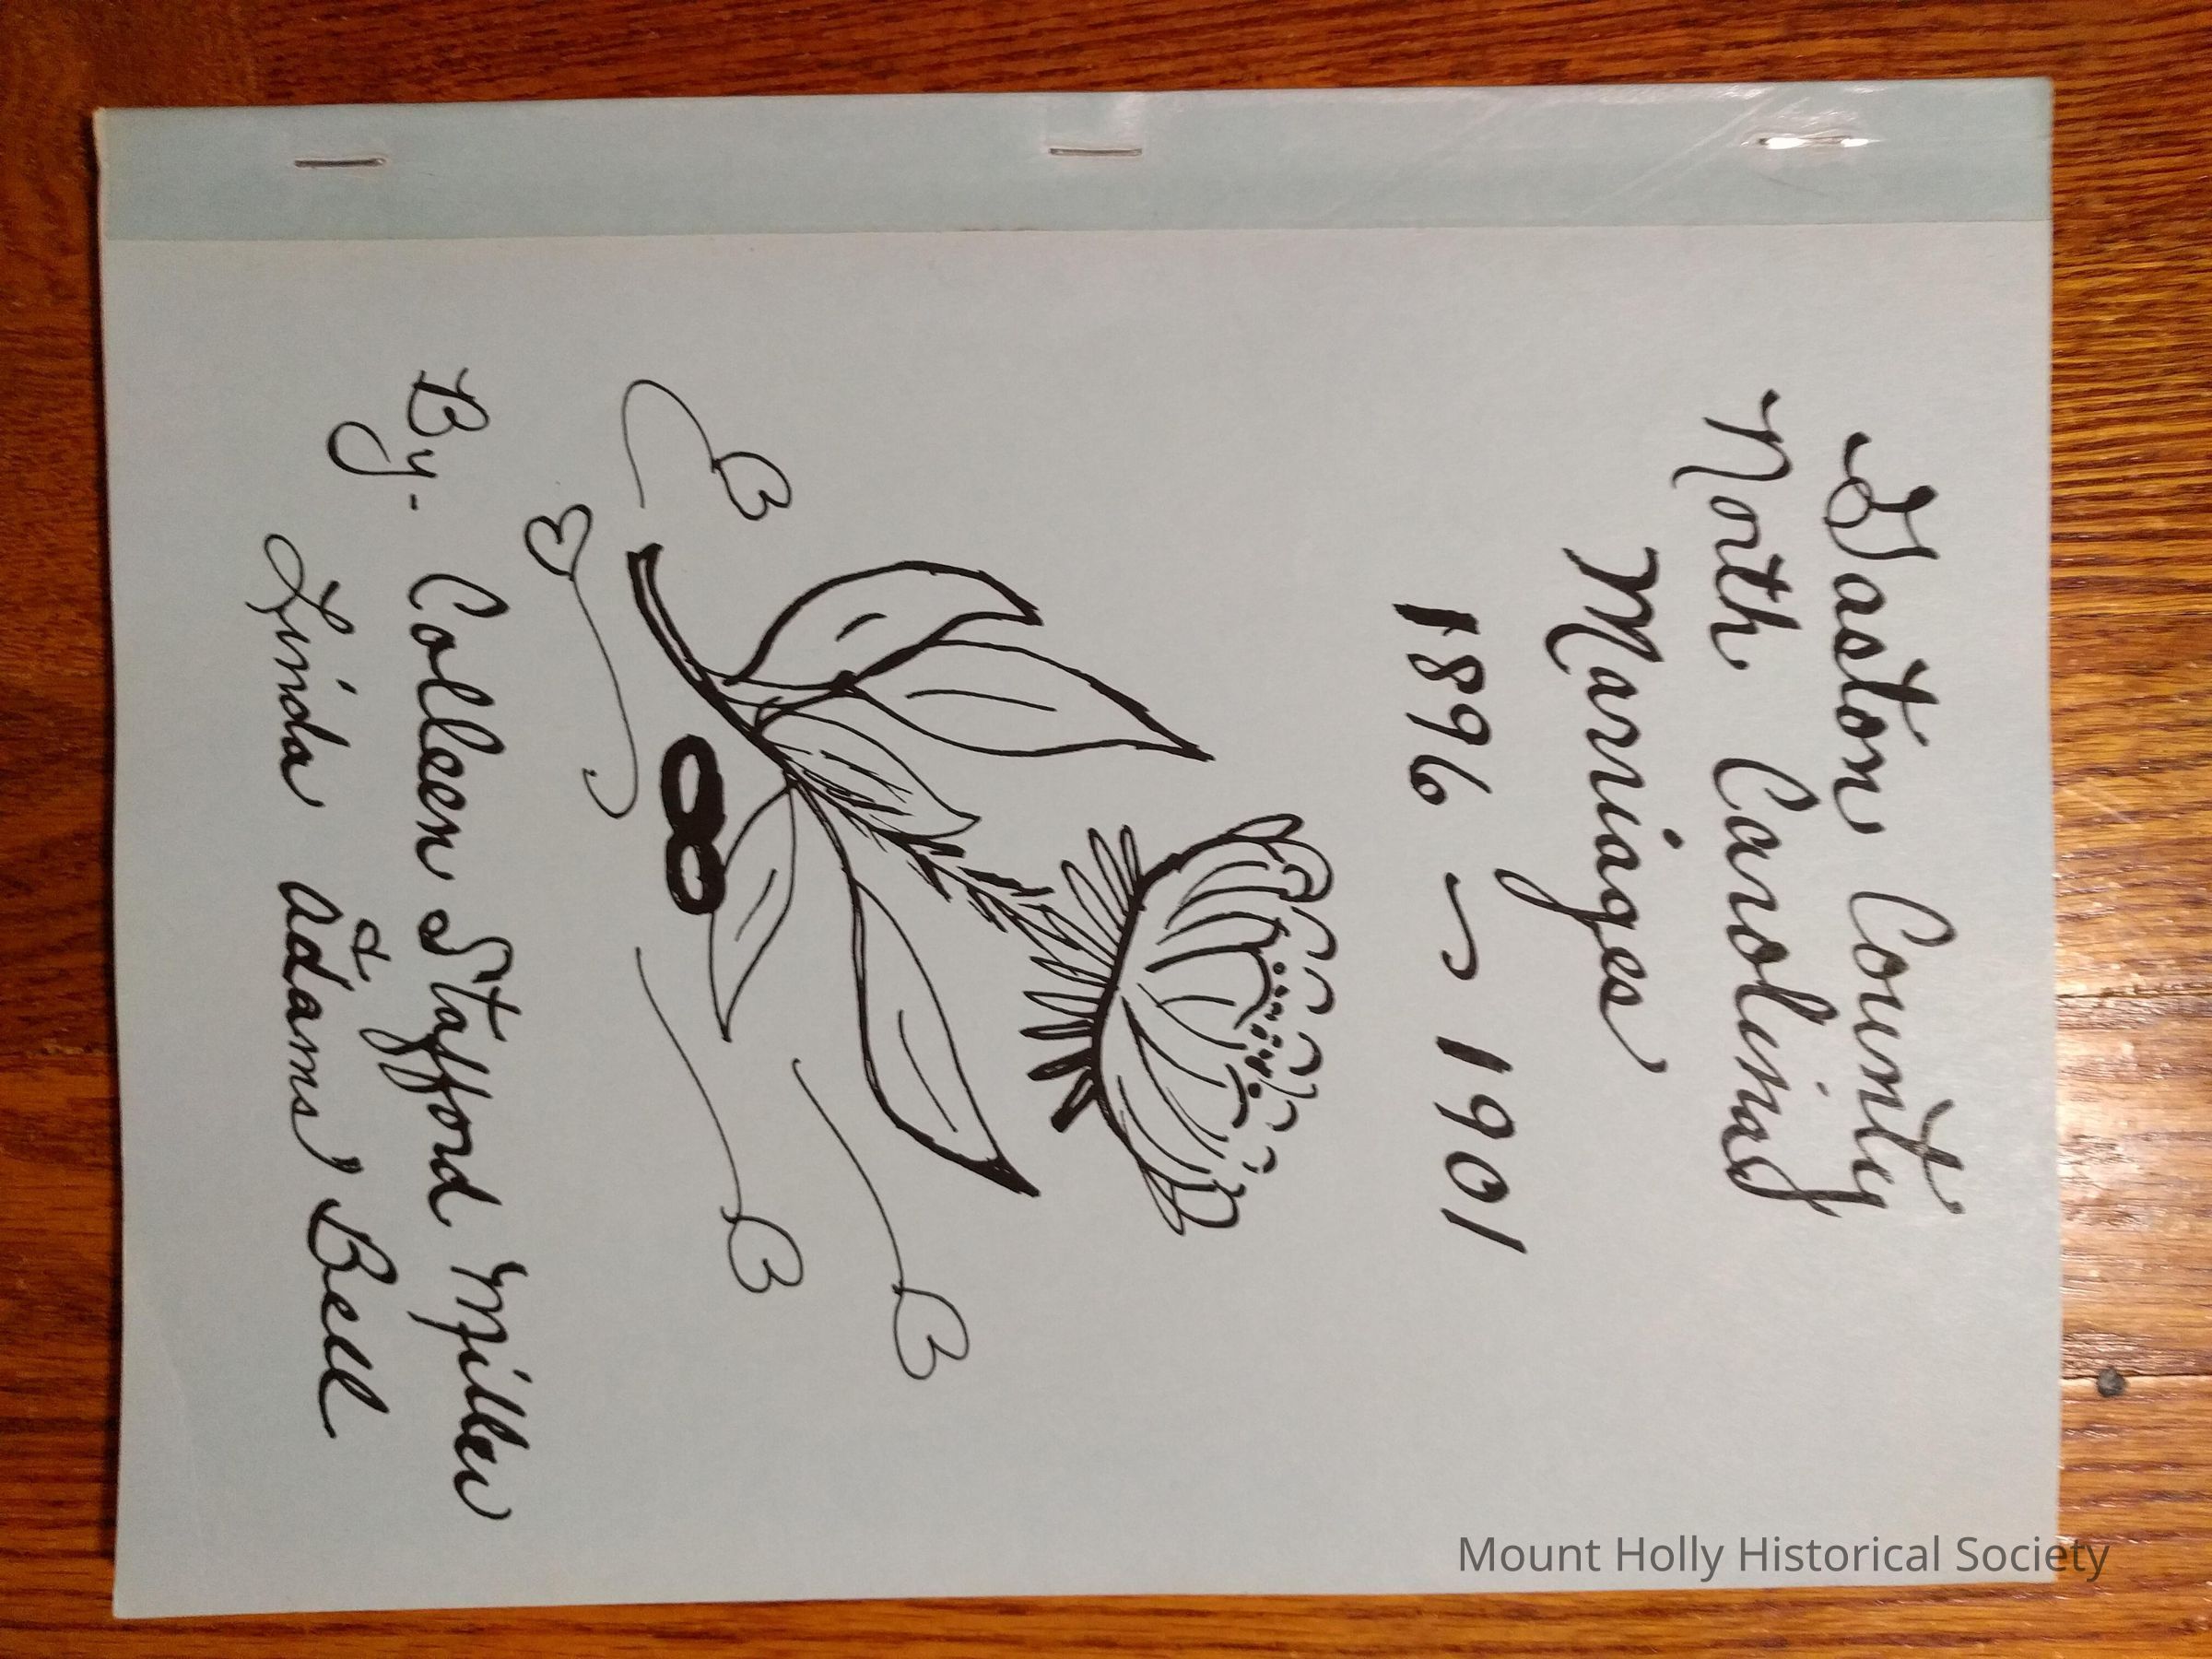 Gaston County
North Carolina
Marriages
1896 ~ 1901
By- Colleen Stafford Miller
&
Linda Adams Bell
Mount Holly Historical Society